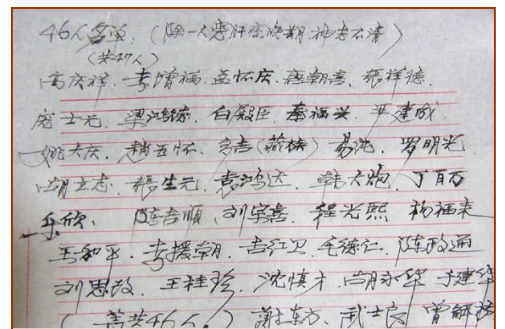 46人名单：(除一人患肝癌晚期神志不清)
(共47人)
高庆祥、李增福、孟怀庆、唐朝喜、张祥德、
庞士元、梁鸿德、白殿臣、秦福兴、尹建成
姚大庆、赵五怀、方吉(燕椿)、易沈、罗明光
胡立志、张生元、袁鸿达、韩大炮、丁百万
乐欣、陈吉顺、刘宝喜、程光熙、杨福来
王和平、李援朝、吉红卫、毛德仁、陈政通
刘思政、王桂珍、沈慎才、胡永华、于建华
(共46人) 谢东方、武士良、曾解放